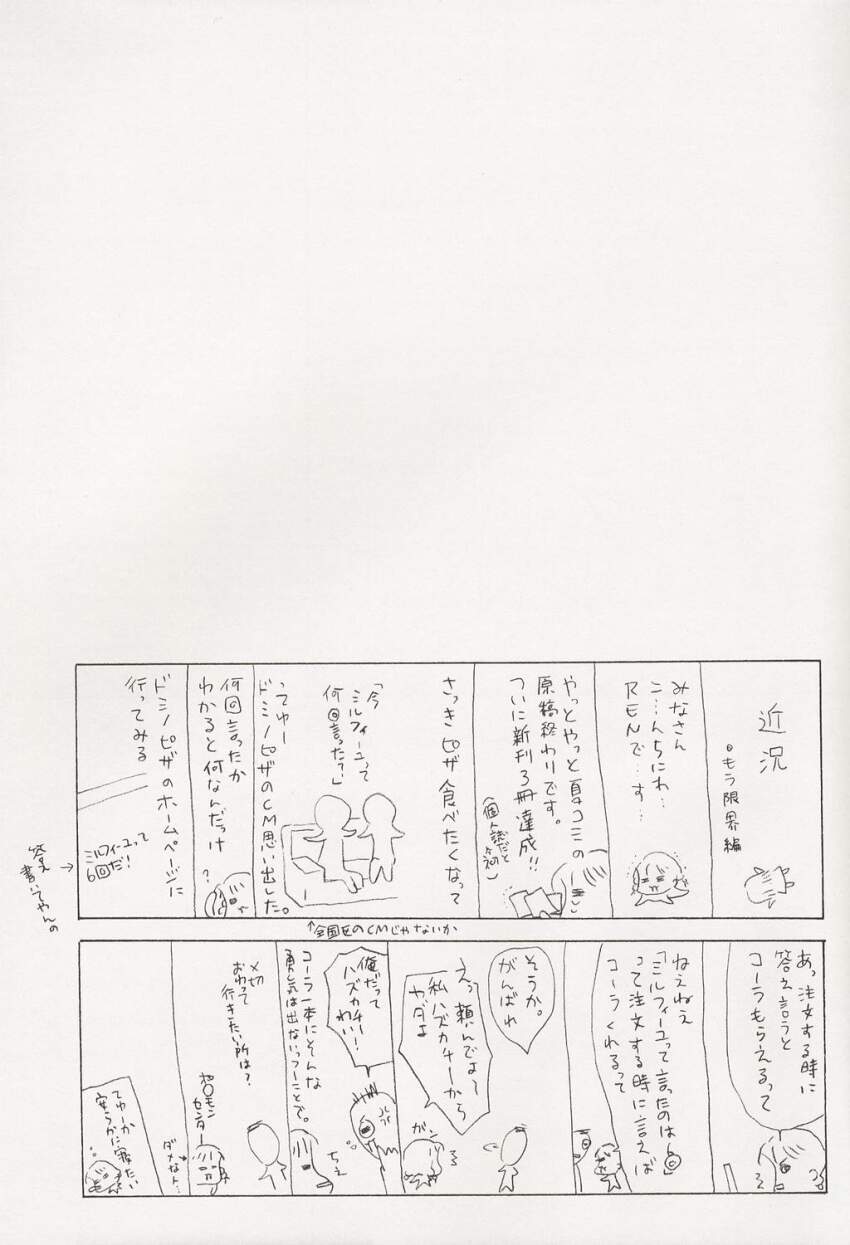 近況
●もう限界編
みなさん
こ…んちにわ…
RENで…す…
やっとやっと夏コミの
原稿終わりです。
ついに新刊3冊達成!!
(個人誌だと
さっきピザ食べたくなって
「今
ミルフィーユって
何回言った?」
ってゆー
ドミノピザのCM思い出した。
↑全国区のCMじゃないか
何回言ったか
わかると何なんだっけ
?
ドミノピザのホームページに
行ってみる
ミルフィーユって
6回だ!
答え→
書いてやんの
あっ注文する時に
答え言うと
コーラもらえるって
ねえねえ
「ミルフィーユって言ったのは6回」
って注文する時に言えば
コーラくれるって
そうか。
がんばれ
えっ頼んでよ〜
私ハズカチーから
ヤダよ
ガーン
俺だって
ハズカチー!
わい!
コーラ一本にそんな
勇気は出ないっつーことで。
ちぇ
〆切
おわって
行きたい所は?
センター
ダメなト…
てゆーか
安らかに寝たい